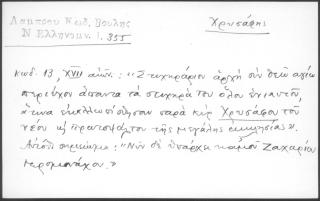 Λάμπρου Κώδ. Βουλῆς
Ν. Ἑλληνομν. 1. 355
Χρυσάφης
Κωδ. 13, XVII αἰῶν.: "Στιχηράριον ἀρχὴ σὺν θεῷ ἁγίῳ
περιέχον ἅπαντα τὰ στιχηρὰ τοῦ ὅλου ἐνιαυτοῦ,
ἅτινα ἐκαλλωπίσθησαν παρὰ κὺρ Χρυσάφου τοῦ
νέου καὶ πρωτοψάλτου τῆς μεγάλης ἐκκλησίας".
σημείωμα: "Νῦν δὲ ὑπάρχει κἀμοῦ Ζαχαρίου
ἱερομονάχου."